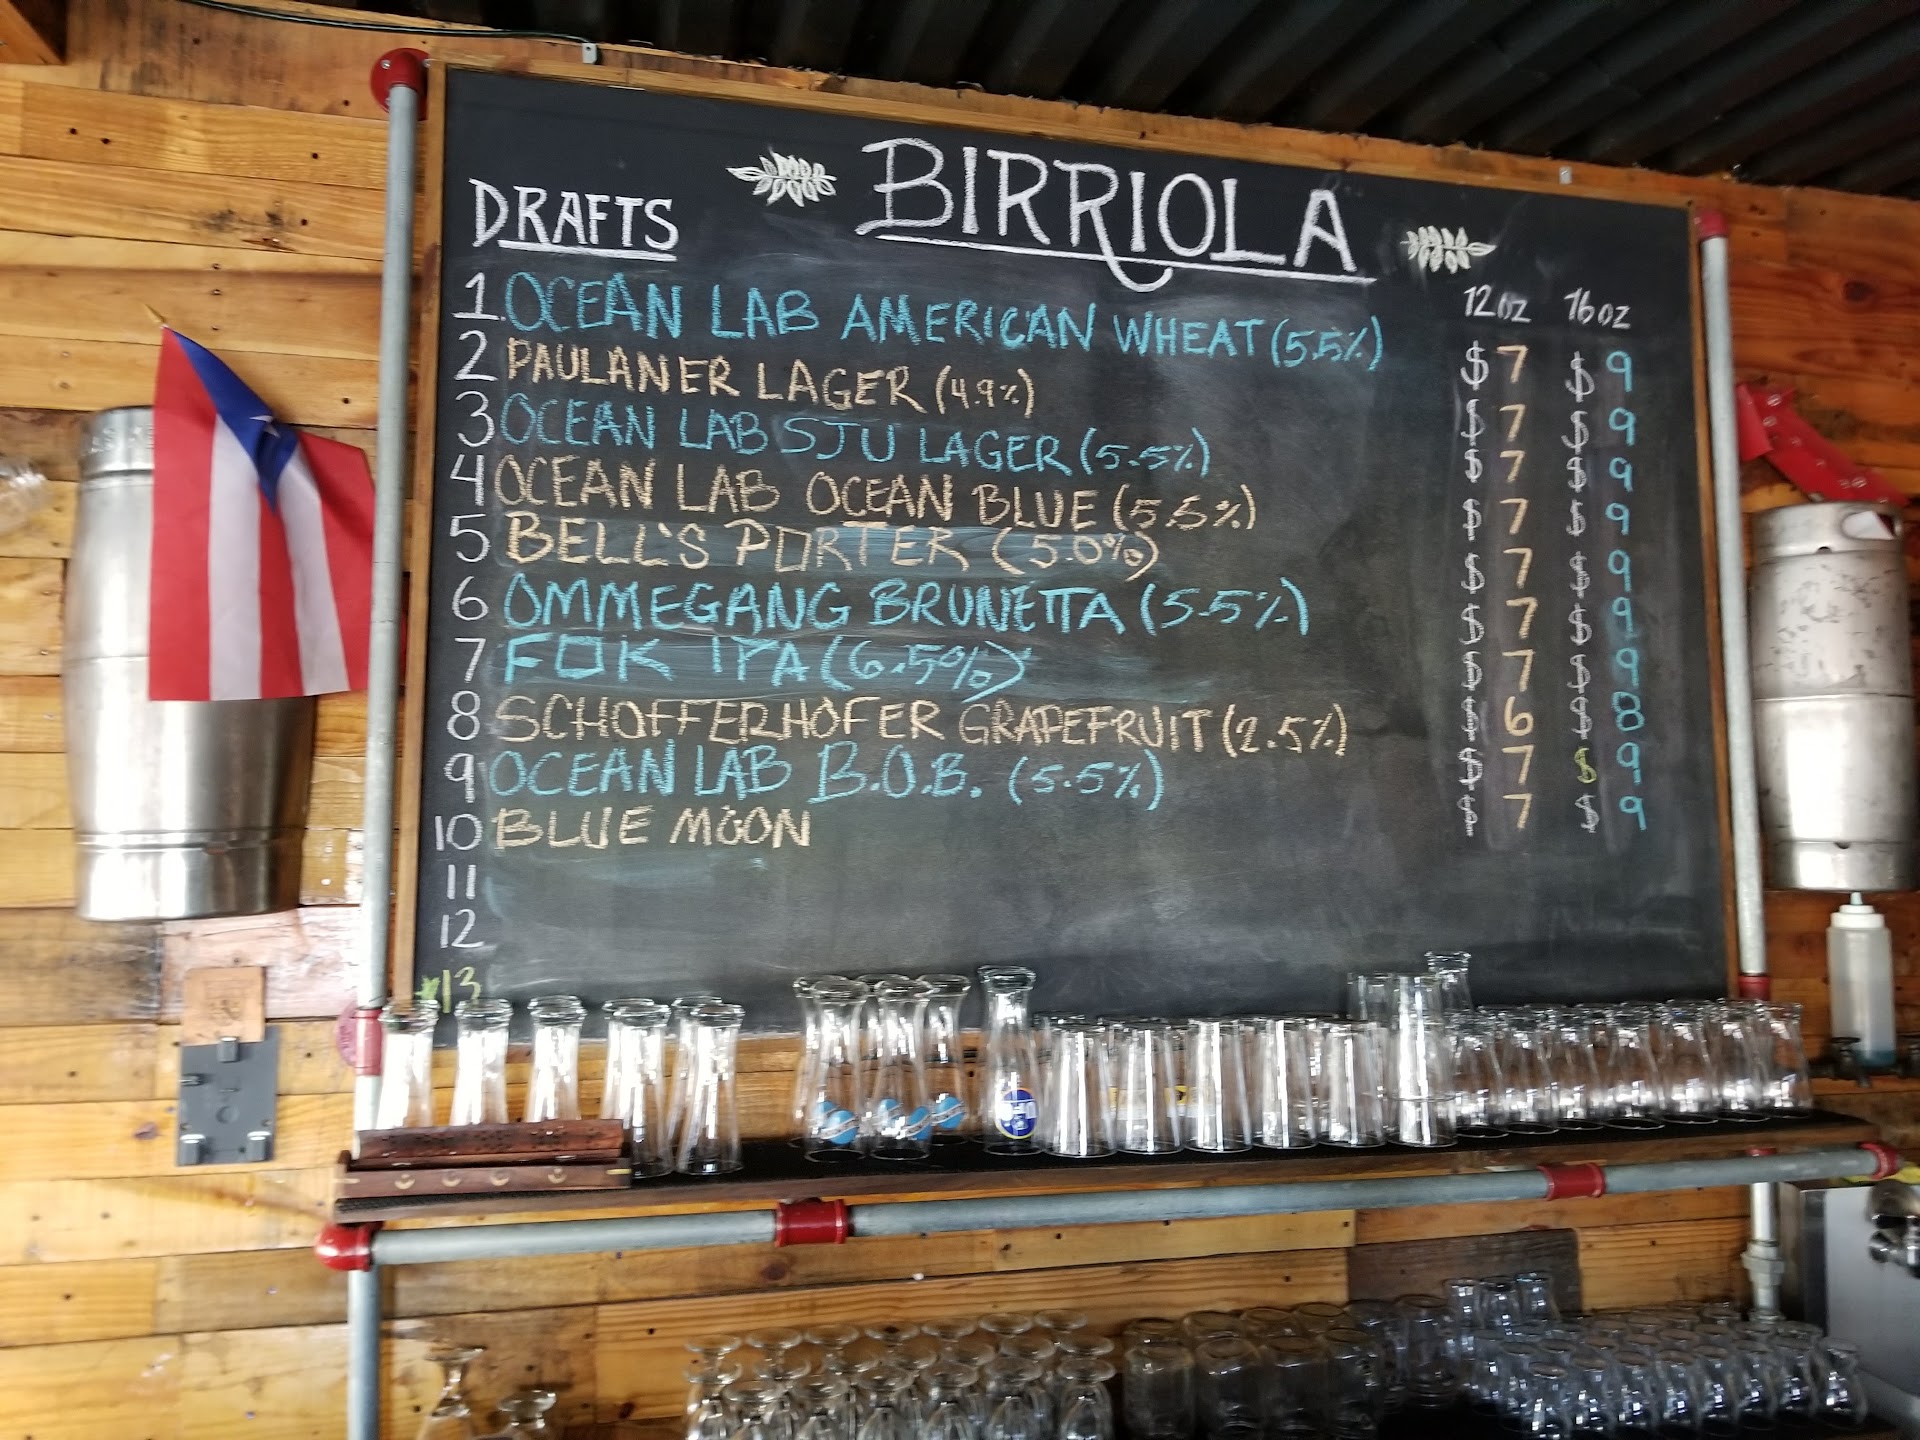 BIRRIOLA
DRAFTS
12oz 16oz
1. OCEAN LAB AMERICAN WHEAT (5.5%) $7 $9
2 PAULANER LAGER (4.9%) $7 $9
3 OCEAN LAB SJU LAGER (5.5%) $7 $9
4 OCEAN LAB OCEAN BLUE (5.5%) $7 $9
5 BELL'S PORTER (5.0%) $7 $9
6 OMMEGANG BRUNETTA (5.5%) $7 $9
7 FOK IPA (6.5%) $7 $9
8 SCHOFFERHOFER GRAPEFRUIT (2.5%) $6 $8
9 OCEAN LAB B.O.B. (5.5%) $7 $9
10 BLUE MOON $7 $9
11
12
13